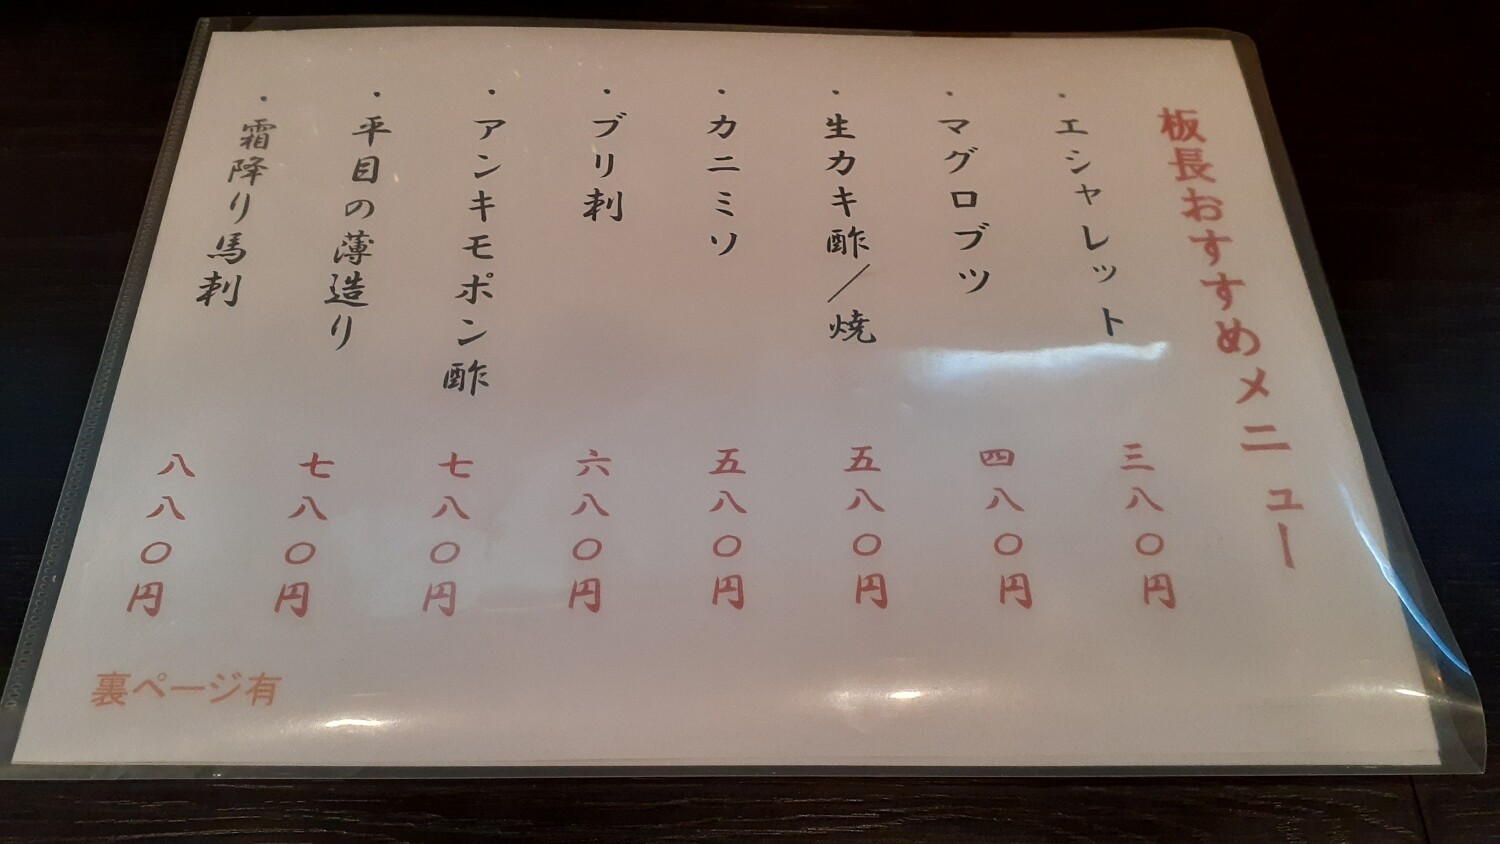 板長おすすめメニュー
・エシャレット 三八〇円
・マグロブツ 四八〇円
・生カキ酢／焼 五八〇円
・カニミソ 五八〇円
・ブリ刺 六八〇円
・アンキモポン酢 七八〇円
・平目の薄造り 七八〇円
・霜降り馬刺 八八〇円
裏ページ有